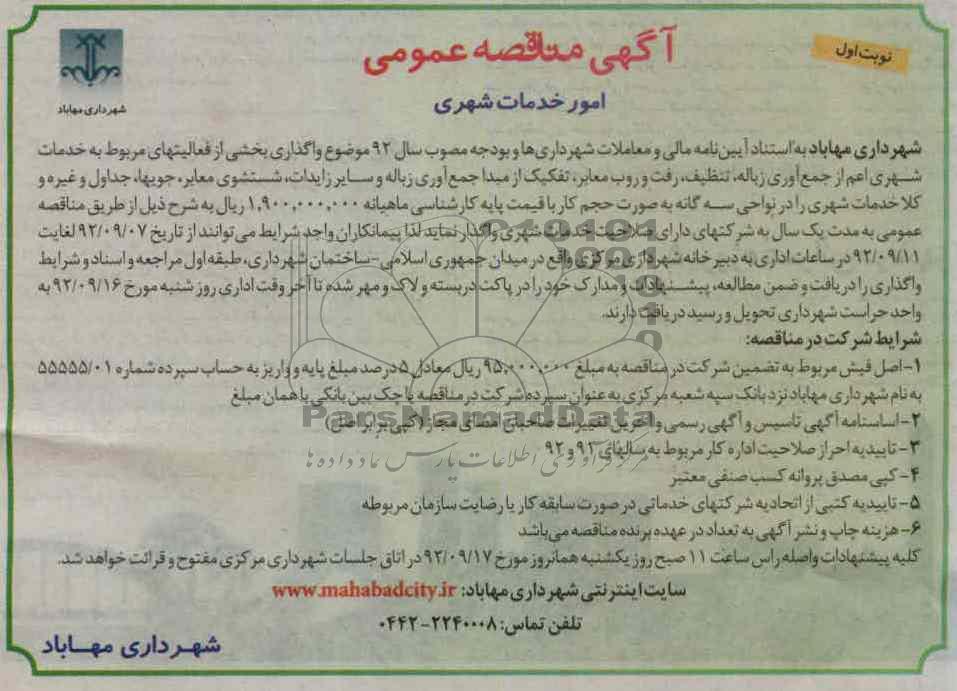 نوبت اول
آگهی مناقصه عمومی
شهرداری مهاباد
امور خدمات شهری
شهرداری مهاباد به استناد آیین‌نامه مالی و معاملات شهرداری‌ها و بودجه مصوب سال ۹۲ موضوع واگذاری بخشی از فعالیتهای مربوط به خدمات
شهری اعم از جمع‌آوری زباله، تنظیف، رفت و روب معابر، تفکیک از مبدا جمع‌آوری زباله و سایر زایدات، شستشوی معابر، جویها، جداول و غیره و
کلا خدمات شهری را در نواحی سه گانه به صورت حجم کار با قیمت پایه کارشناسی ماهیانه ۱,۹۰۰,۰۰۰,۰۰۰ ریال به شرح ذیل از طریق مناقصه
عمومی به مدت یک سال به شرکتهای دارای صلاحیت خدمات شهری واگذار نماید لذا پیمانکاران واجد شرایط می‌توانند از تاریخ ۹۲/۰۹/۰۷ لغایت
۹۲/۰۹/۱۱ در ساعات اداری به دبیرخانه شهرداری مرکزی واقع در میدان جمهوری اسلامی-ساختمان شهرداری، طبقه اول مراجعه و اسناد و شرایط
واگذاری را دریافت و ضمن مطالعه، پیشنهادات و مدارک خود را در پاکت دربسته و لاک و مهر شده تا آخر وقت اداری روز شنبه مورخ ۹۲/۰۹/۱۶ به
واحد حراست شهرداری تحویل و رسید دریافت دارند.
شرایط شرکت در مناقصه:
۱-اصل فیش مربوط به تضمین شرکت در مناقصه به مبلغ ۹۵,۰۰۰,۰۰۰ ریال معادل ۵ درصد مبلغ پایه و واریز به حساب سپرده شماره ۵۵۵۵۵/۰۱
به نام شهرداری مهاباد نزد بانک سپه شعبه مرکزی به عنوان سپرده شرکت در مناقصه یا چک بین بانکی با همان مبلغ
۲-اساسنامه آگهی تاسیس و آگهی رسمی و آخرین تغییرات صاحبان امضای مجاز (کپی برابر اصل)
۳-تاییدیه احراز صلاحیت اداره کار مربوط به سالهای ۹۱ و ۹۲
۴-کپی مصدق پروانه کسب صنفی معتبر
۵-تاییدیه کتبی از اتحادیه شرکتهای خدماتی در صورت سابقه کار یا رضایت سازمان مربوطه
۶-هزینه چاپ و نشر آگهی به تعداد در عهده برنده مناقصه می‌باشد
کلیه پیشنهادات واصله راس ساعت ۱۱ صبح روز یکشنبه همانروز مورخ ۹۲/۰۹/۱۷ در اتاق جلسات شهرداری مرکزی مفتوح و قرائت خواهد شد.
سایت اینترنتی شهرداری مهاباد: www.mahabadcity.ir
تلفن تماس: ۲۲۴۰۰۰۸-۰۴۴۲
شهرداری مهاباد
ParsNamadData
مرکز فرآوری اطلاعات پارس نماد داده ها